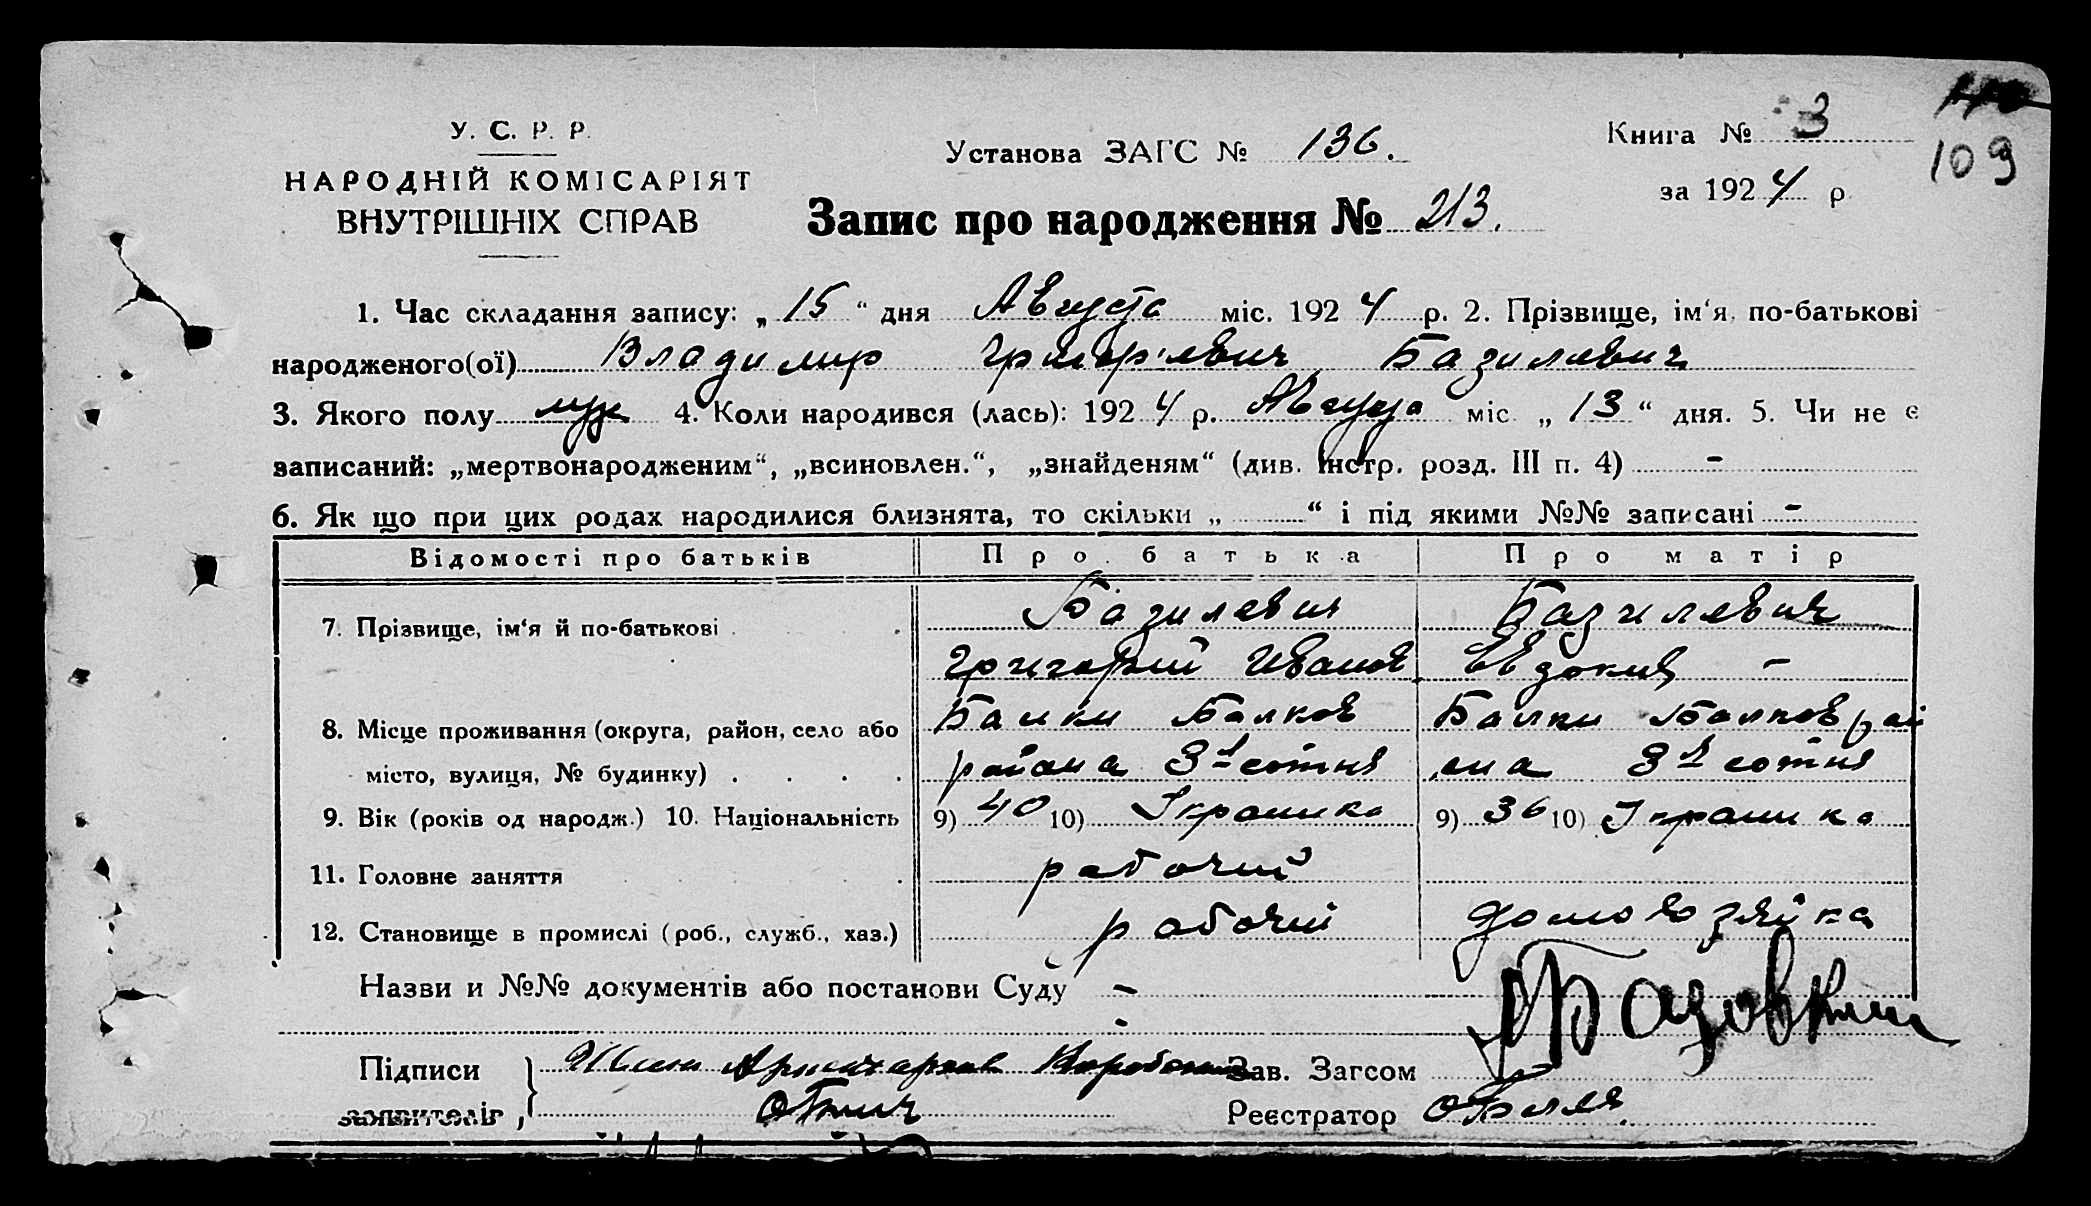 У. С. Р. Р.
НАРОДНІЙ КОМІСАРІЯТ
ВНУТРІШНІХ СПРАВ
Установа ЗАГС № 136.
Книга № 3
109
за 1924 р.
Запис про народження № 213.
1. Час складання запису: „15“ дня Августа міс. 1924 р. 2. Прізвище, ім‘я, по-батькові
народженого(ої) Владимир Григорьевич Базилевич
3. Якого полу муж 4. Коли народився (лась): 1924 р. Августа міс. „13“ дня. 5. Чи не є
записаний: „мертвонародженим“, „всиновлен.“, „знайденям“ (див. інстр. розд. III п. 4) -
6. Як що при цих родах народилися близнята, то скільки „ “ і під якими №№ записані -
Відомості про батьків Про батька Про матір
7. Прізвище, ім‘я й по-батькові Базилевич Базилевич
Григорий Иванов. Евдокия -
8. Місце проживання (округа, район, село або Балки Балков Балки Балков рай
місто, вулиця, № будинку) района 3я сотня она 3я сотня
9. Вік (років од народж.) 10. Національність 9) 40 10) Україника 9) 36 10) Україника
11. Головне заняття рабочий
12. Становище в промислі (роб., служб., хаз.) рабочий домохозяйка
Назви и №№ документів або постанови Суду -
-
Підписи Зав. Загсом
заявителів Реєстратор